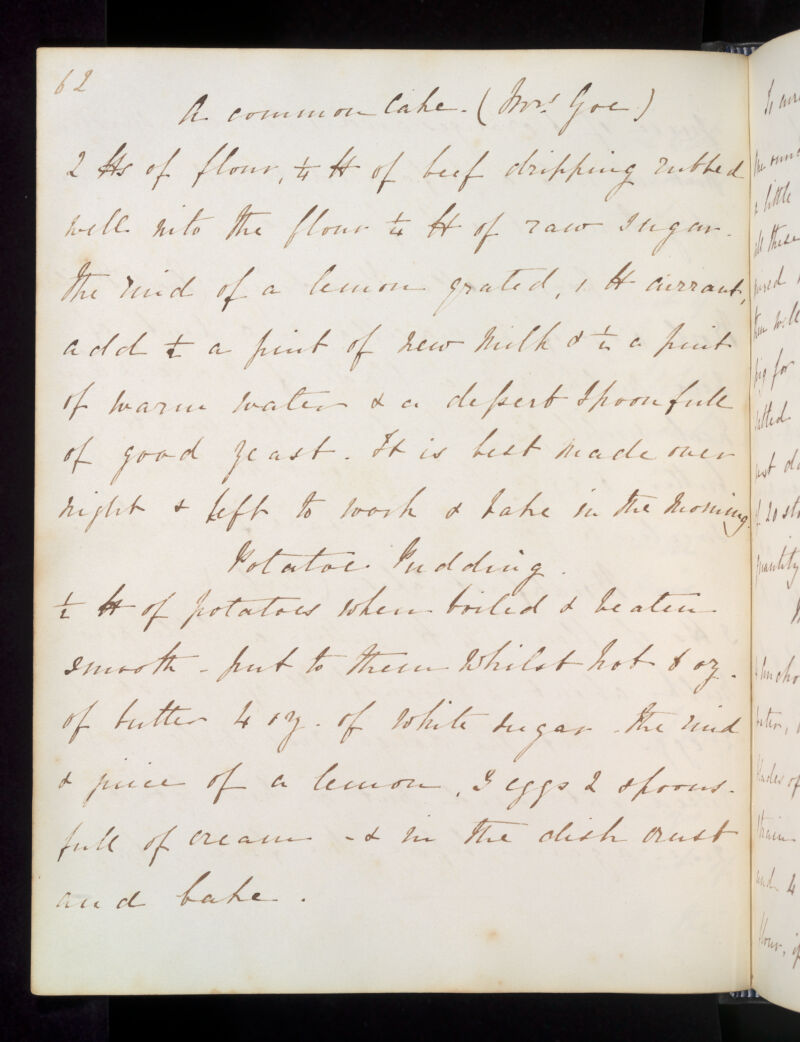 62
A common Cake. (Mrs. Goe)
2 lbs of flour, 1/4 lb of beef dripping rubbed
well into the flour 1/4 lb of raw sugar.
the rind of a lemon grated, 1 lb currants,
add 1/2 a pint of new milk & 1/2 a pint
of warm water & a dessert spoonfull
of good yeast. It is best made over
night & left to work & bake in the morning.
Potatoe Pudding.
1/2 lb of potatoes when boiled & beaten
smooth - put to them whilst hot 8 oz.
of butter 4 oz. of white sugar - the rind
& juice of a lemon, 3 eggs 2 spoons-
full of cream - & in the dish crust
and bake.
a little
all these
for
of 20
quantity
of
and 4
flour,